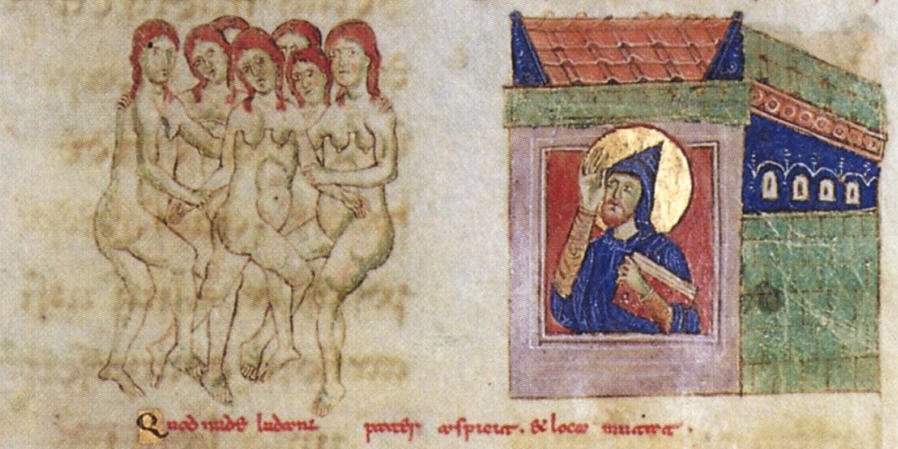 Quod nude ludunt pater aspicit. & loca mutat.